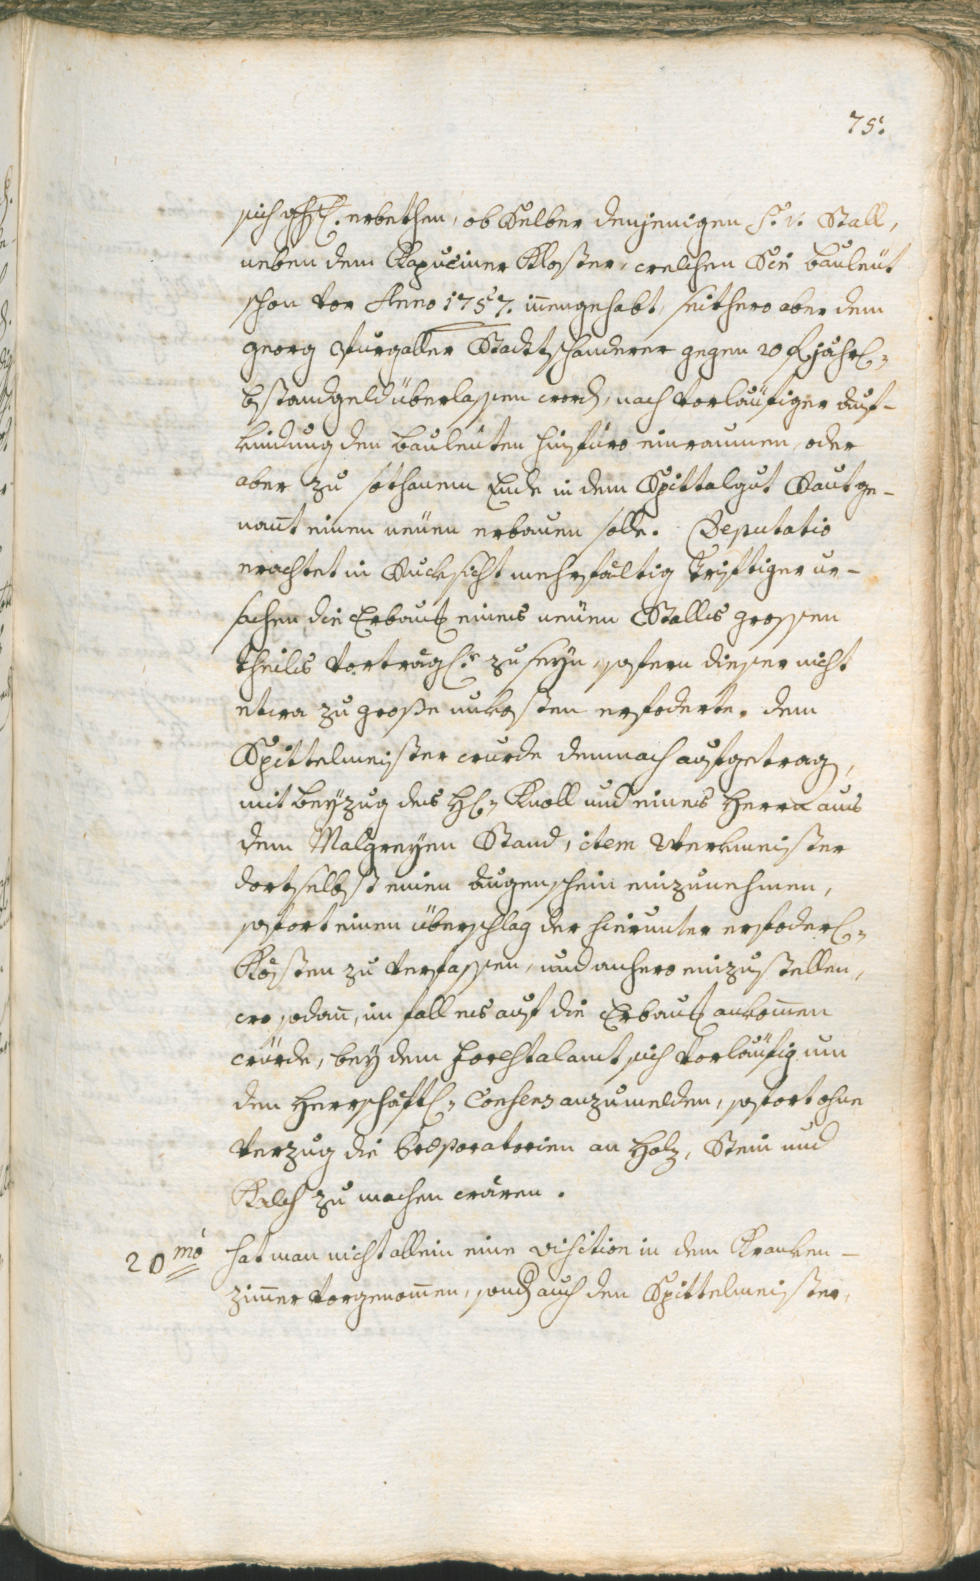 75.
sich erbethen, ob Selber denjenigen S: v: Stall,
neben dem Kapuciner Kloster, welchen Sei Bauleüt
schon vor Anno 1757. innengehabt, seithero aber dem
Georg Purgaller Stadtschanderer gegen 20 f jährl:
bstandgeld überlassen word, nach vorläufiger auf-
kindung den Bauleüten hinfüro einraumen, oder
aber zu sothanem Ende in dem Spittalgut Baut ge-
nant einen neüen erbauen solle. Deputatio
erachtet in Rucksicht mehrfältig triftiger ur-
sachen die Erbauung eines neüen Stalles grossen
theils vorträgl: zu seyn, sofern dieser nicht
etwa zu große unkosten erfoderte. dem
Spittelmeister wurde demnach aufgetrag,
mit beyzug des H: Knoll und eines Herrn aus
dem Malgreyen Stand, item Werkmeister
dortselbst einen augenschein einzunehmen,
sofort einen überschlag der hierunter erfoderl:
Kösten zu verfassen, und anhero einzustellen,
wo sodan, im fall es auf die Erbauung ankomen
würde, bey dem Hochstalamt sich vorläufig um
den Herrschaftl: Consens anzumelden, sofort ohne
verzug die Præparatorien an Holz, Stein und
Kalch zu machen wären.
20mò hat man nicht allein eine visition in dem Kranken-
zimer vorgenomen, sond auch den Spittelmeister,